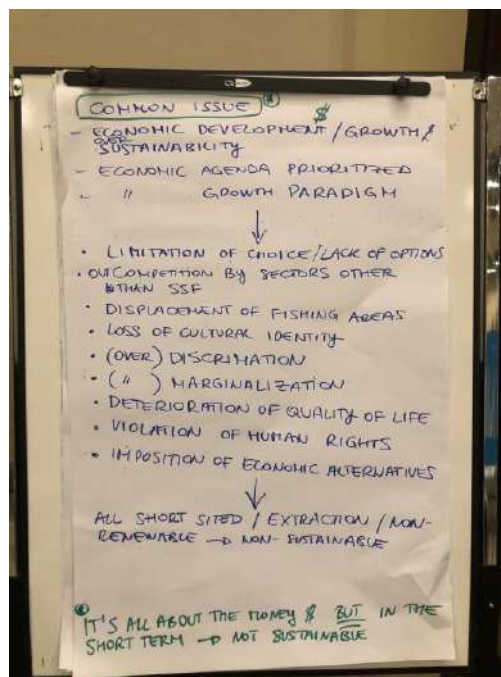 COMMON ISSUE
$
- ECONOMIC DEVELOPMENT / GROWTH $
OVER
SUSTAINABILITY
- ECONOMIC AGENDA PRIORITIZED
- " GROWTH PARADIGM
↓
• LIMITATION OF CHOICE/LACK OF OPTIONS
• OUTCOMPETITION BY SECTORS OTHER
THAN SSF
• DISPLACEMENT OF FISHING AREAS
• LOSS OF CULTURAL IDENTITY
• (OVER) DISCRIMATION
• ( " ) MARGINALIZATION
• DETERIORATION OF QUALITY OF LIFE
• VIOLATION OF HUMAN RIGHTS
• IMPOSITION OF ECONOMIC ALTERNATIVES
↓
ALL SHORT SITED / EXTRACTION / NON-
RENEWABLE → NON-SUSTAINABLE
IT'S ALL ABOUT THE MONEY $ BUT IN THE
SHORT TERM → NOT SUSTAINABLE